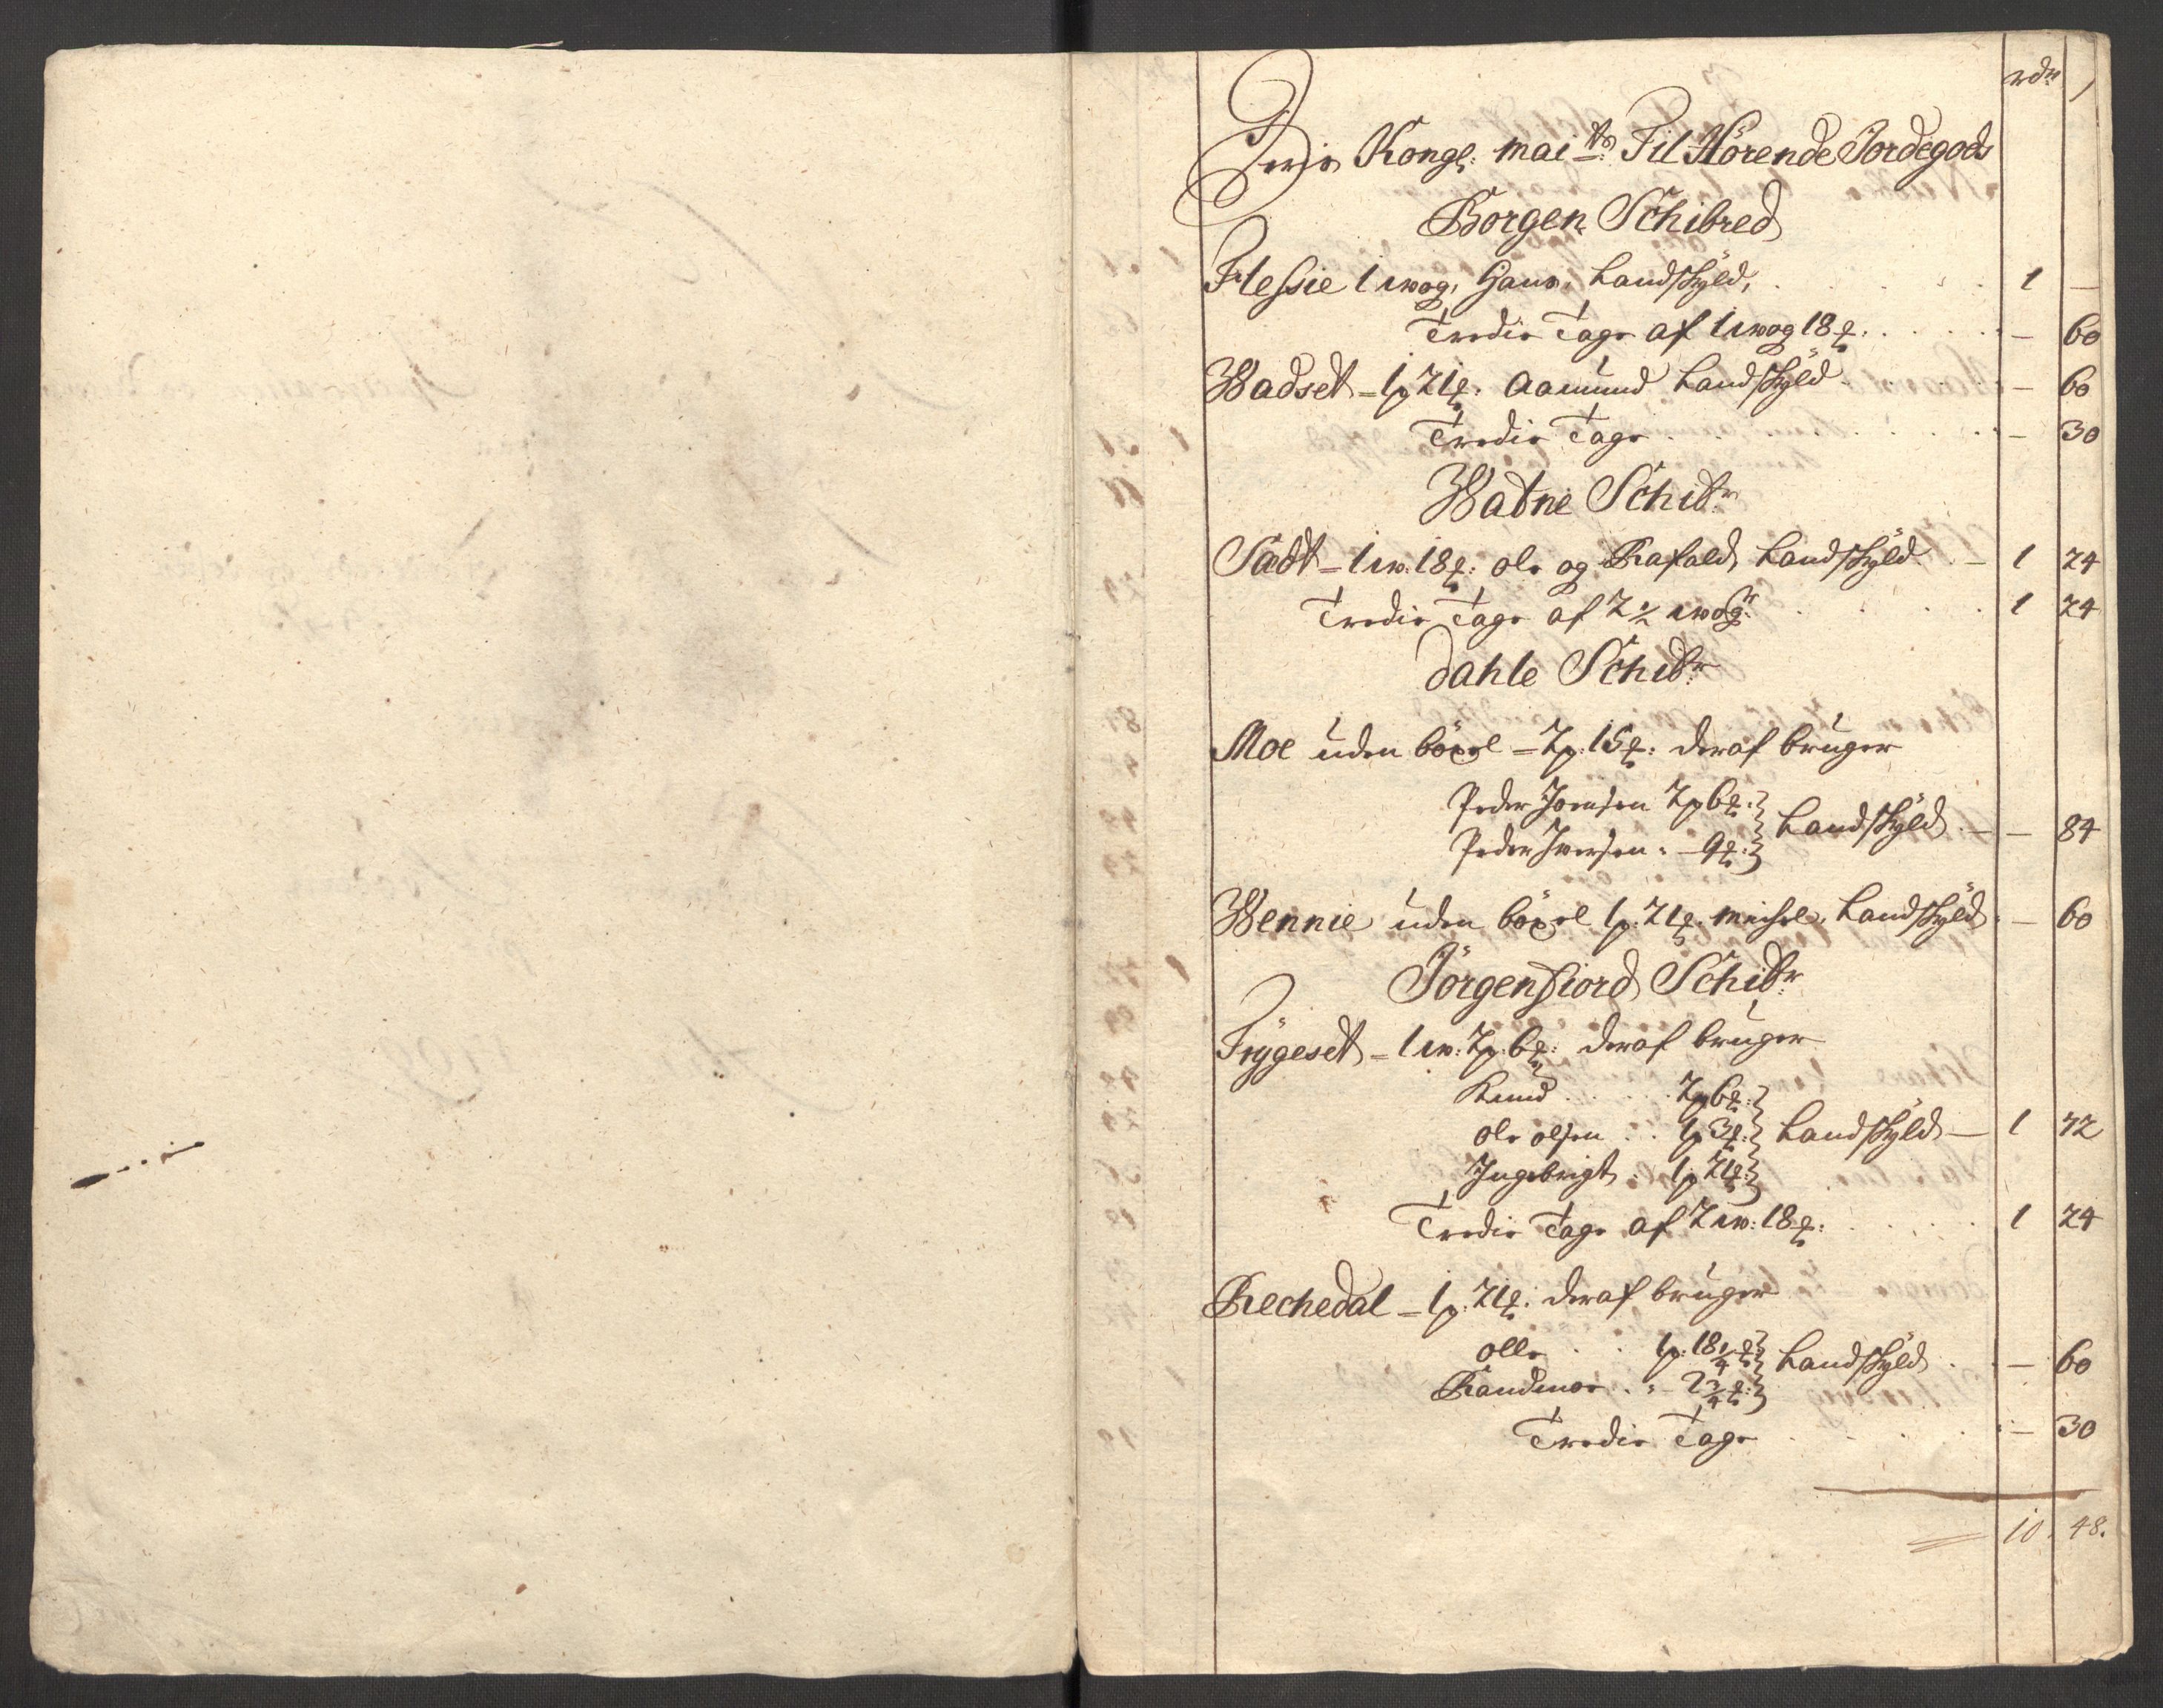 rdr
Deris Kongl: mai ts Til Hörende Jordegods
Borgen Schibred
Flessie 1 wog, Hans, Landskyld, 1 —
Tredie Tage af 1 wog 18 ℔: — 60
Wadset – 1 p 21 ℔: Aamund Landskyld — 60
Tredie Tage — 30
Watne Schibr:
Sådt – 1 w: 18 ℔: ole og Rafald Landskyld 1 24
Tredie Tage af 2 ½ wogr 1 24
Dahle Schibr:
Moe uden böxel – 2 p: 15 ℔: deraf bruger
Peder Joensen 2 p 6 ℔:
Peder Iversen: – 9 ℔: Landskyld — 84
Wennie uden böxel 1 p. 21 ℔. michel, Landskyld — 60
Jörgenfiord Schibr:
Frygeset – 1 w: 2 p. 6 ℔: deraf bruger
Knud 2 p 6 ℔:
ole olsen 1 p 3 ℔: Landskyld 1 72
Ingebrigt 1 p 21 ℔:
Tredie Tage af 2 w: 18 ℔: 1 24
Rechedal – 1 p. 21 ℔: deraf bruger
olle 1 p: 18 ¼ ℔: Landskyld — 60
Randmoe 2 ¾ ℔:
Tredie Tage — 30
10. 48.